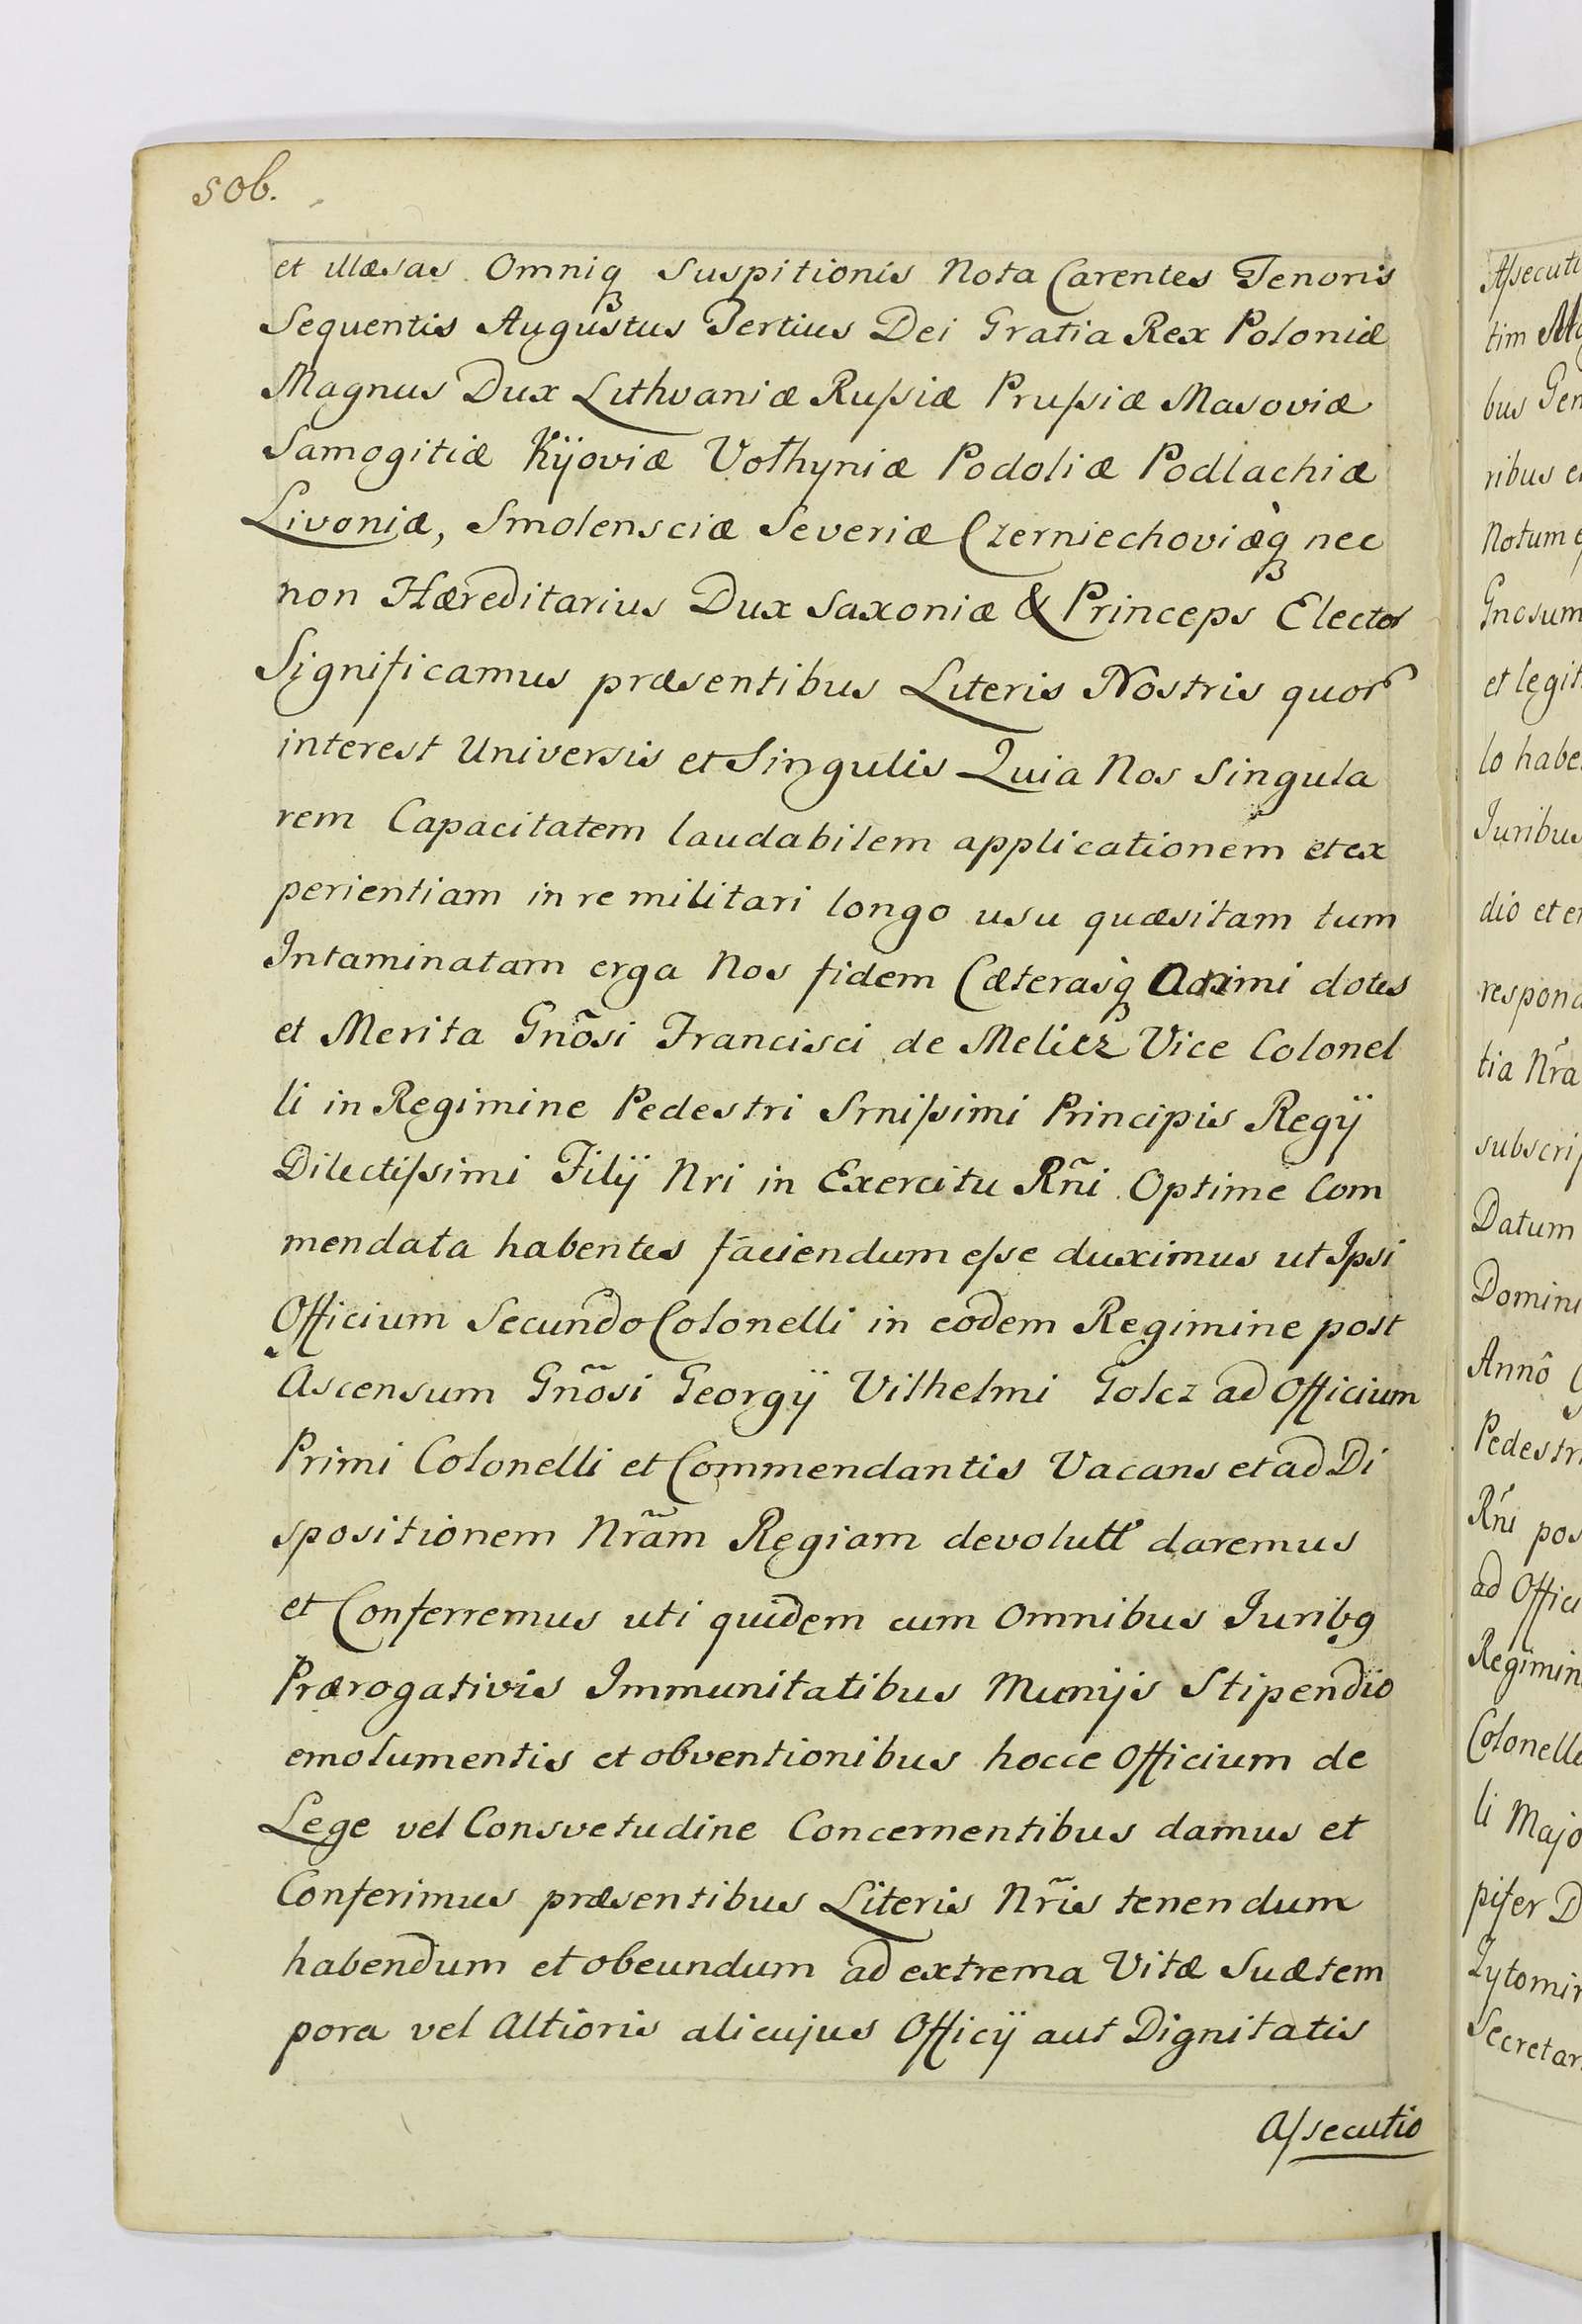 sob.
et illæsas Omniq₃ Suspitionis Nota Carentes Tenoris
Sequentis Augustus Tertius Dei Gratia Rex Poloniæ
Magnus Dux Lithvaniæ Rußiæ Prußiæ Masoviæ
Samogitiæ Kÿoviæ Volhyniæ Podoliæ Podlachiæ
Livoniæ, Smolensciæ Severiæ Czerniechoviæq₃ nec
non Hæreditarius Dux Saxoniæ & Princeps Elector
Significamus præsentibus Literis Nostris quor
interest Universis et Singulis Quia Nos Singula
rem Capacitatem laudabilem applicationem et ex
perientiam in re militari longo usu quæsitam tum
Intaminatam erga Nos fidem Cæterasq₃ Animi dotes
et Merita Gnõsi Francisci de Melicz Vice Colonel
li in Regimine Pedestri Srnißimi Principis Regÿ
Dilectißimi Filÿ Nri in Exercitu Rñi Optime Com
mendata habentes faciendum eße duximus ut Ipsi
Officium Secundo Colonelli in eodem Regimine post
Ascensum Gnõsi Georgÿ Vilhelmi Golcz ad Officium
Primi Colonelli et Commendantis Vacans et ad Di
spositionem Nrãm Regiam devolutt daremus
et Conferremus uti quidem cum Omnibus Juribg
Prærogativis Immunitatibus Munijs Stipendio
emolumentis et obventionibus hocce Officium de
Lege vel Consvetudine Concernentibus damus et
Conferimus præsentibus Literis Nrĩs tenendum
habendum et obeundum ad extrema Vitæ Suæ tem
pora vel Altioris alicujus Officÿ aut Dignitatis
Aßecutio
Aßecuti
tim
bus Gen
ribus
Notum
Gnosum
et legit
lo habe
Juribus
dio et
respond
tia Nra
subscri
Datum
Domini
Annô
Pedestri
Rñi pos
ad Offici
Regimin
Colonelli
li Majo
piter D
Zytomir
Secretar